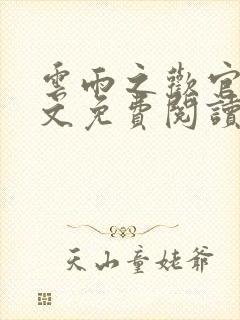 雲雨之歡官
文免費閱讀
天山童姥爺